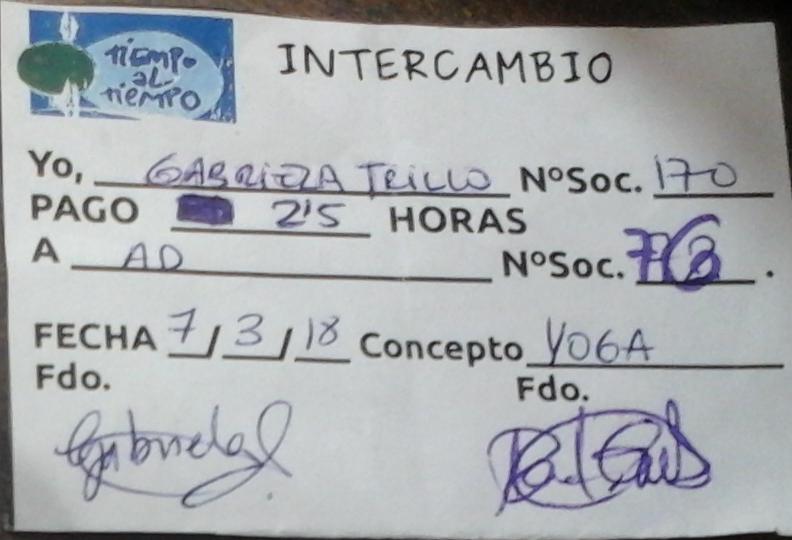 TIEMPO
AL
TIEMPO
INTERCAMBIO
Yo, GABRIELA TRILLO NºSoc. 170
PAGO 2'5 HORAS
A AD NºSoc.
FECHA 7/3/18 Concepto YOGA
Fdo. Fdo.
Gabriela